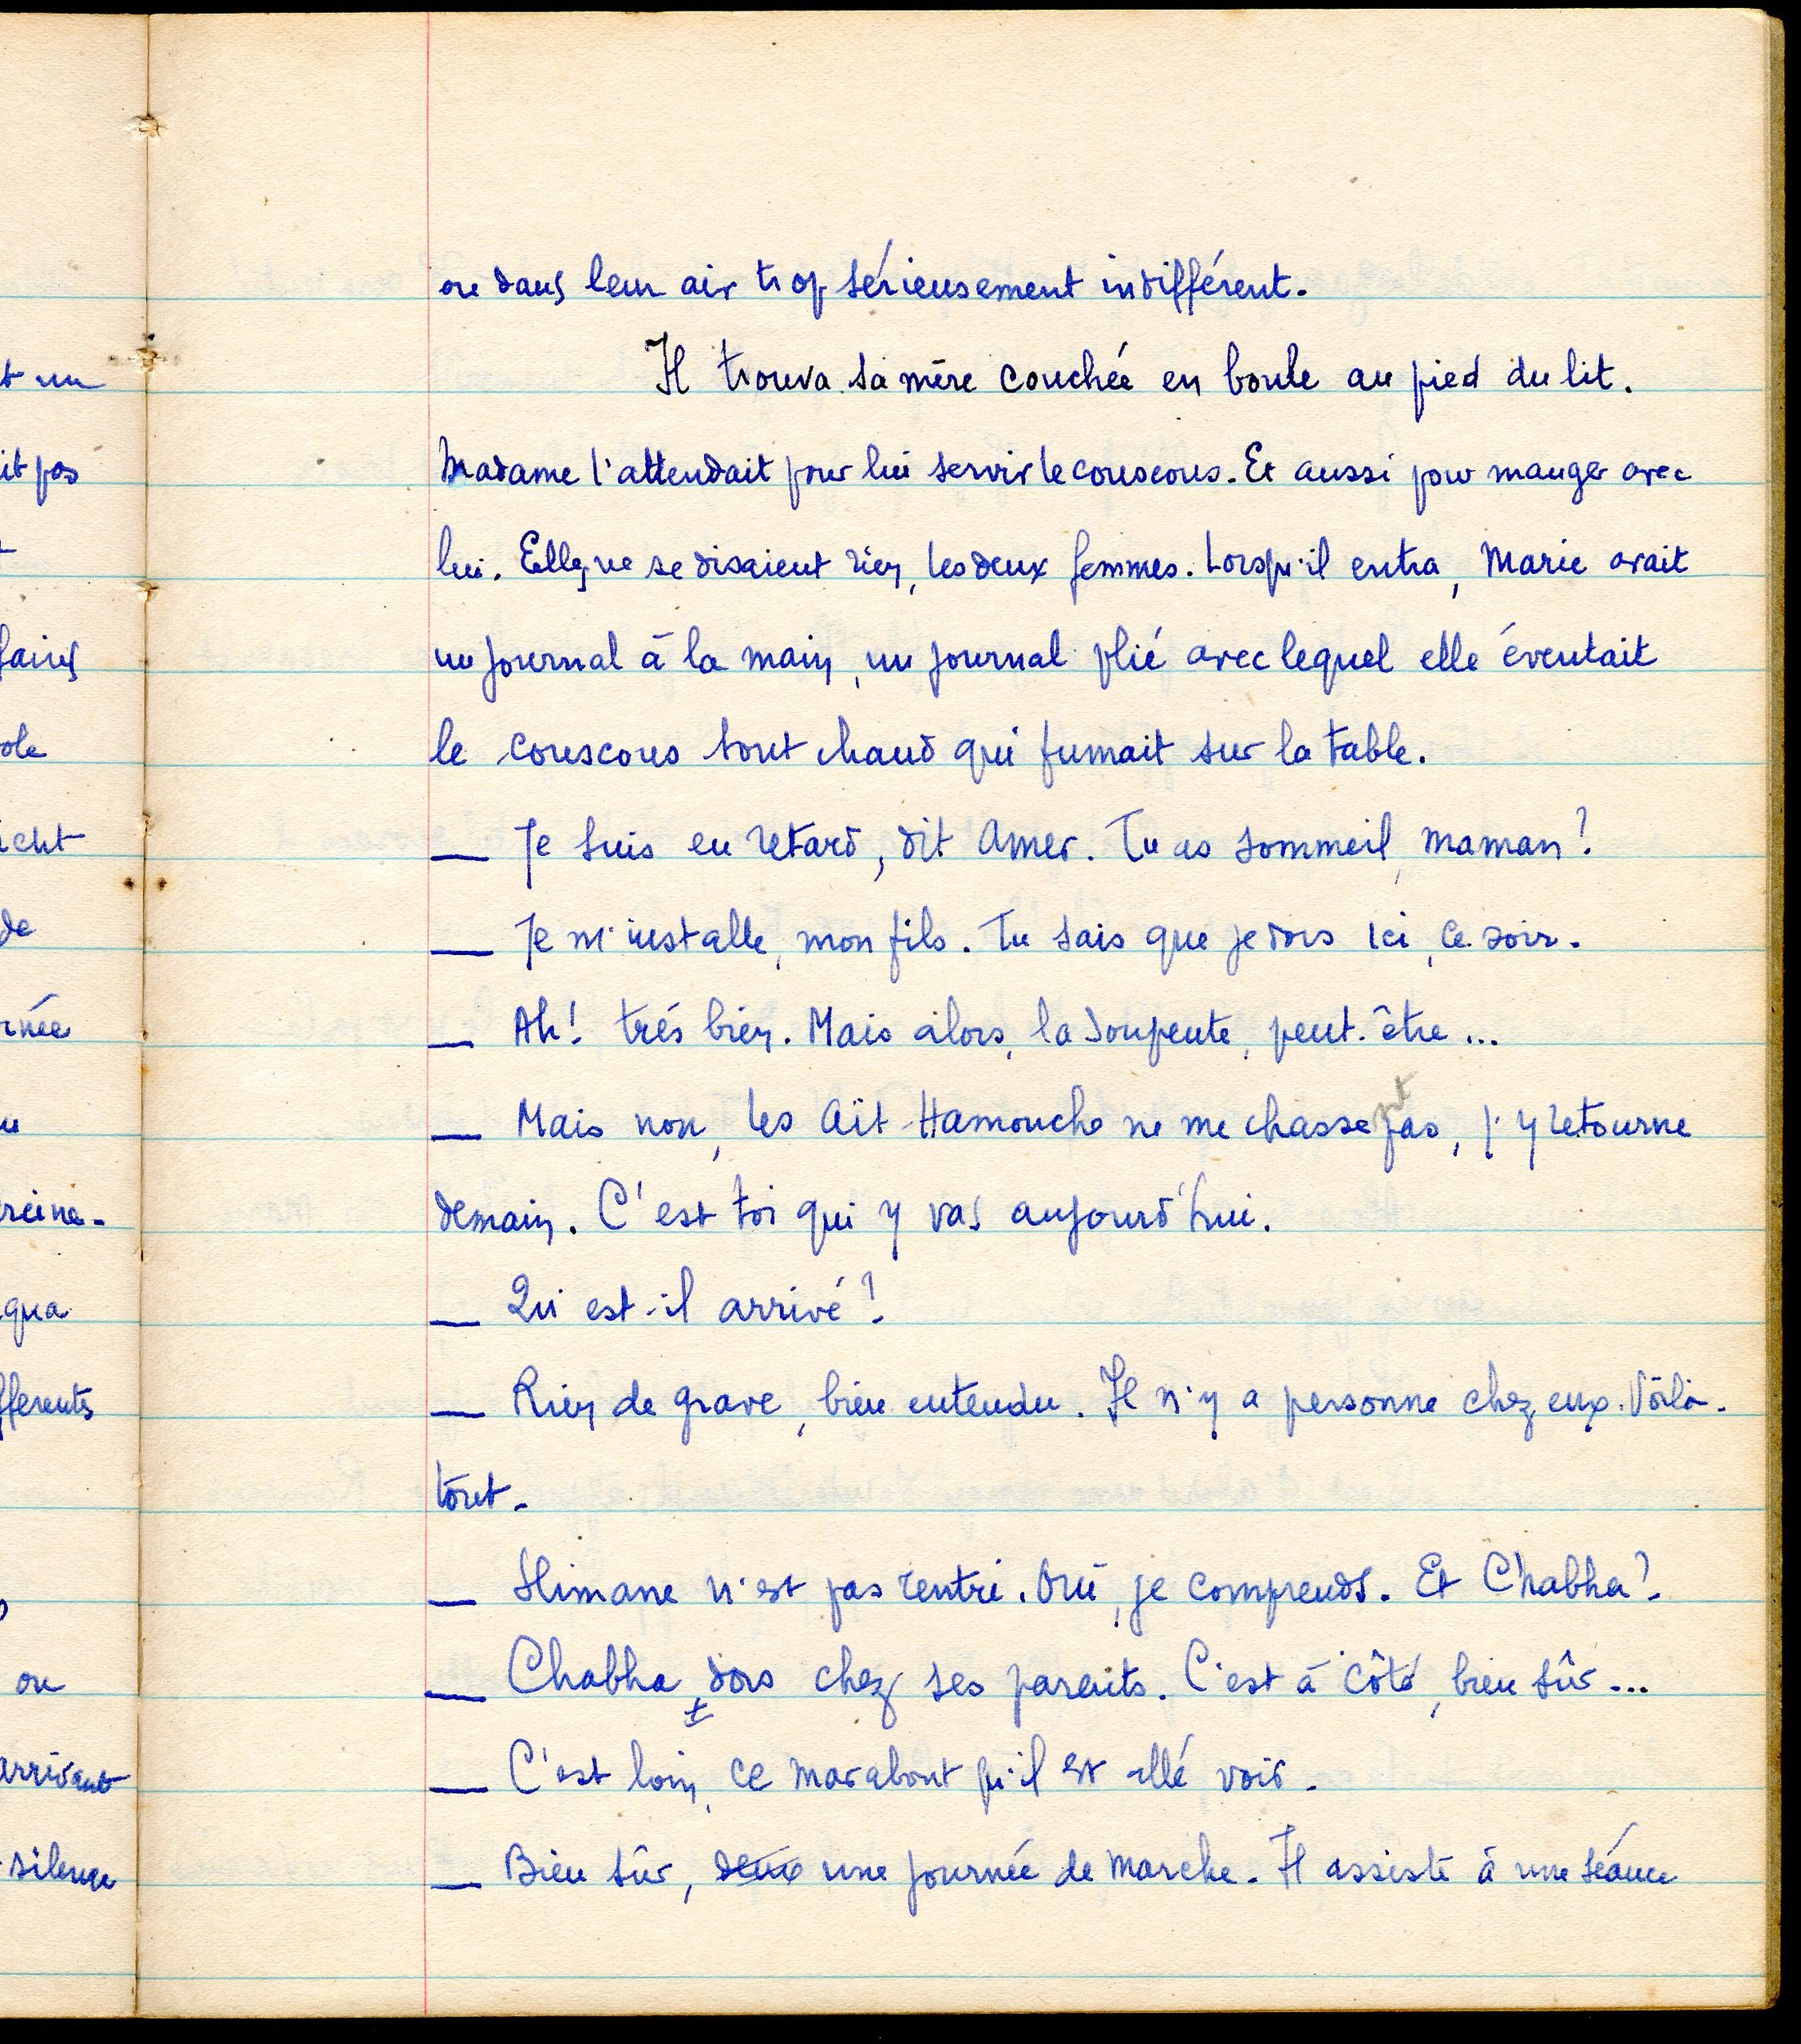 t un
it pas
faires
ole
icht
de
rnée
u
reine.
qua
fférents
ou
arrivant
silence
ou dans leur air trop sérieusement indifférent.
Il trouva sa mère couchée en boule au pied du lit.
Madame l'attendait pour lui servir le couscous. Et aussi pour manger avec
lui. Elles ne se disaient rien, les deux femmes. Lorsqu'il entra, Marie avait
un journal à la main, un journal plié avec lequel elle éventait
le couscous tout chaud qui fumait sur la table.
— Je suis en retard, dit Amer. Tu as sommeil, maman ?
— Je m'installe, mon fils. Tu sais que je dors ici, ce soir.
— Ah ! très bien. Mais alors, la soupente, peut-être ...
— Mais non, les Aït-Hamouche ne me chassent pas, j'y retourne
demain. C'est toi qui y vas aujourd'hui.
— Qu'est-il arrivé ?
— Rien de grave, bien entendu. Il n'y a personne chez eux. Voilà
tout.
— Slimane n'est pas rentré. Oui, je comprends. Et Chabha ?
— Chabha dors t chez ses parents. C'est à côté, bien sûr ...
— C'est loin, ce marabout qu'il est allé voir.
— Bien sûr, deux une journée de marche. Il assiste à une séance